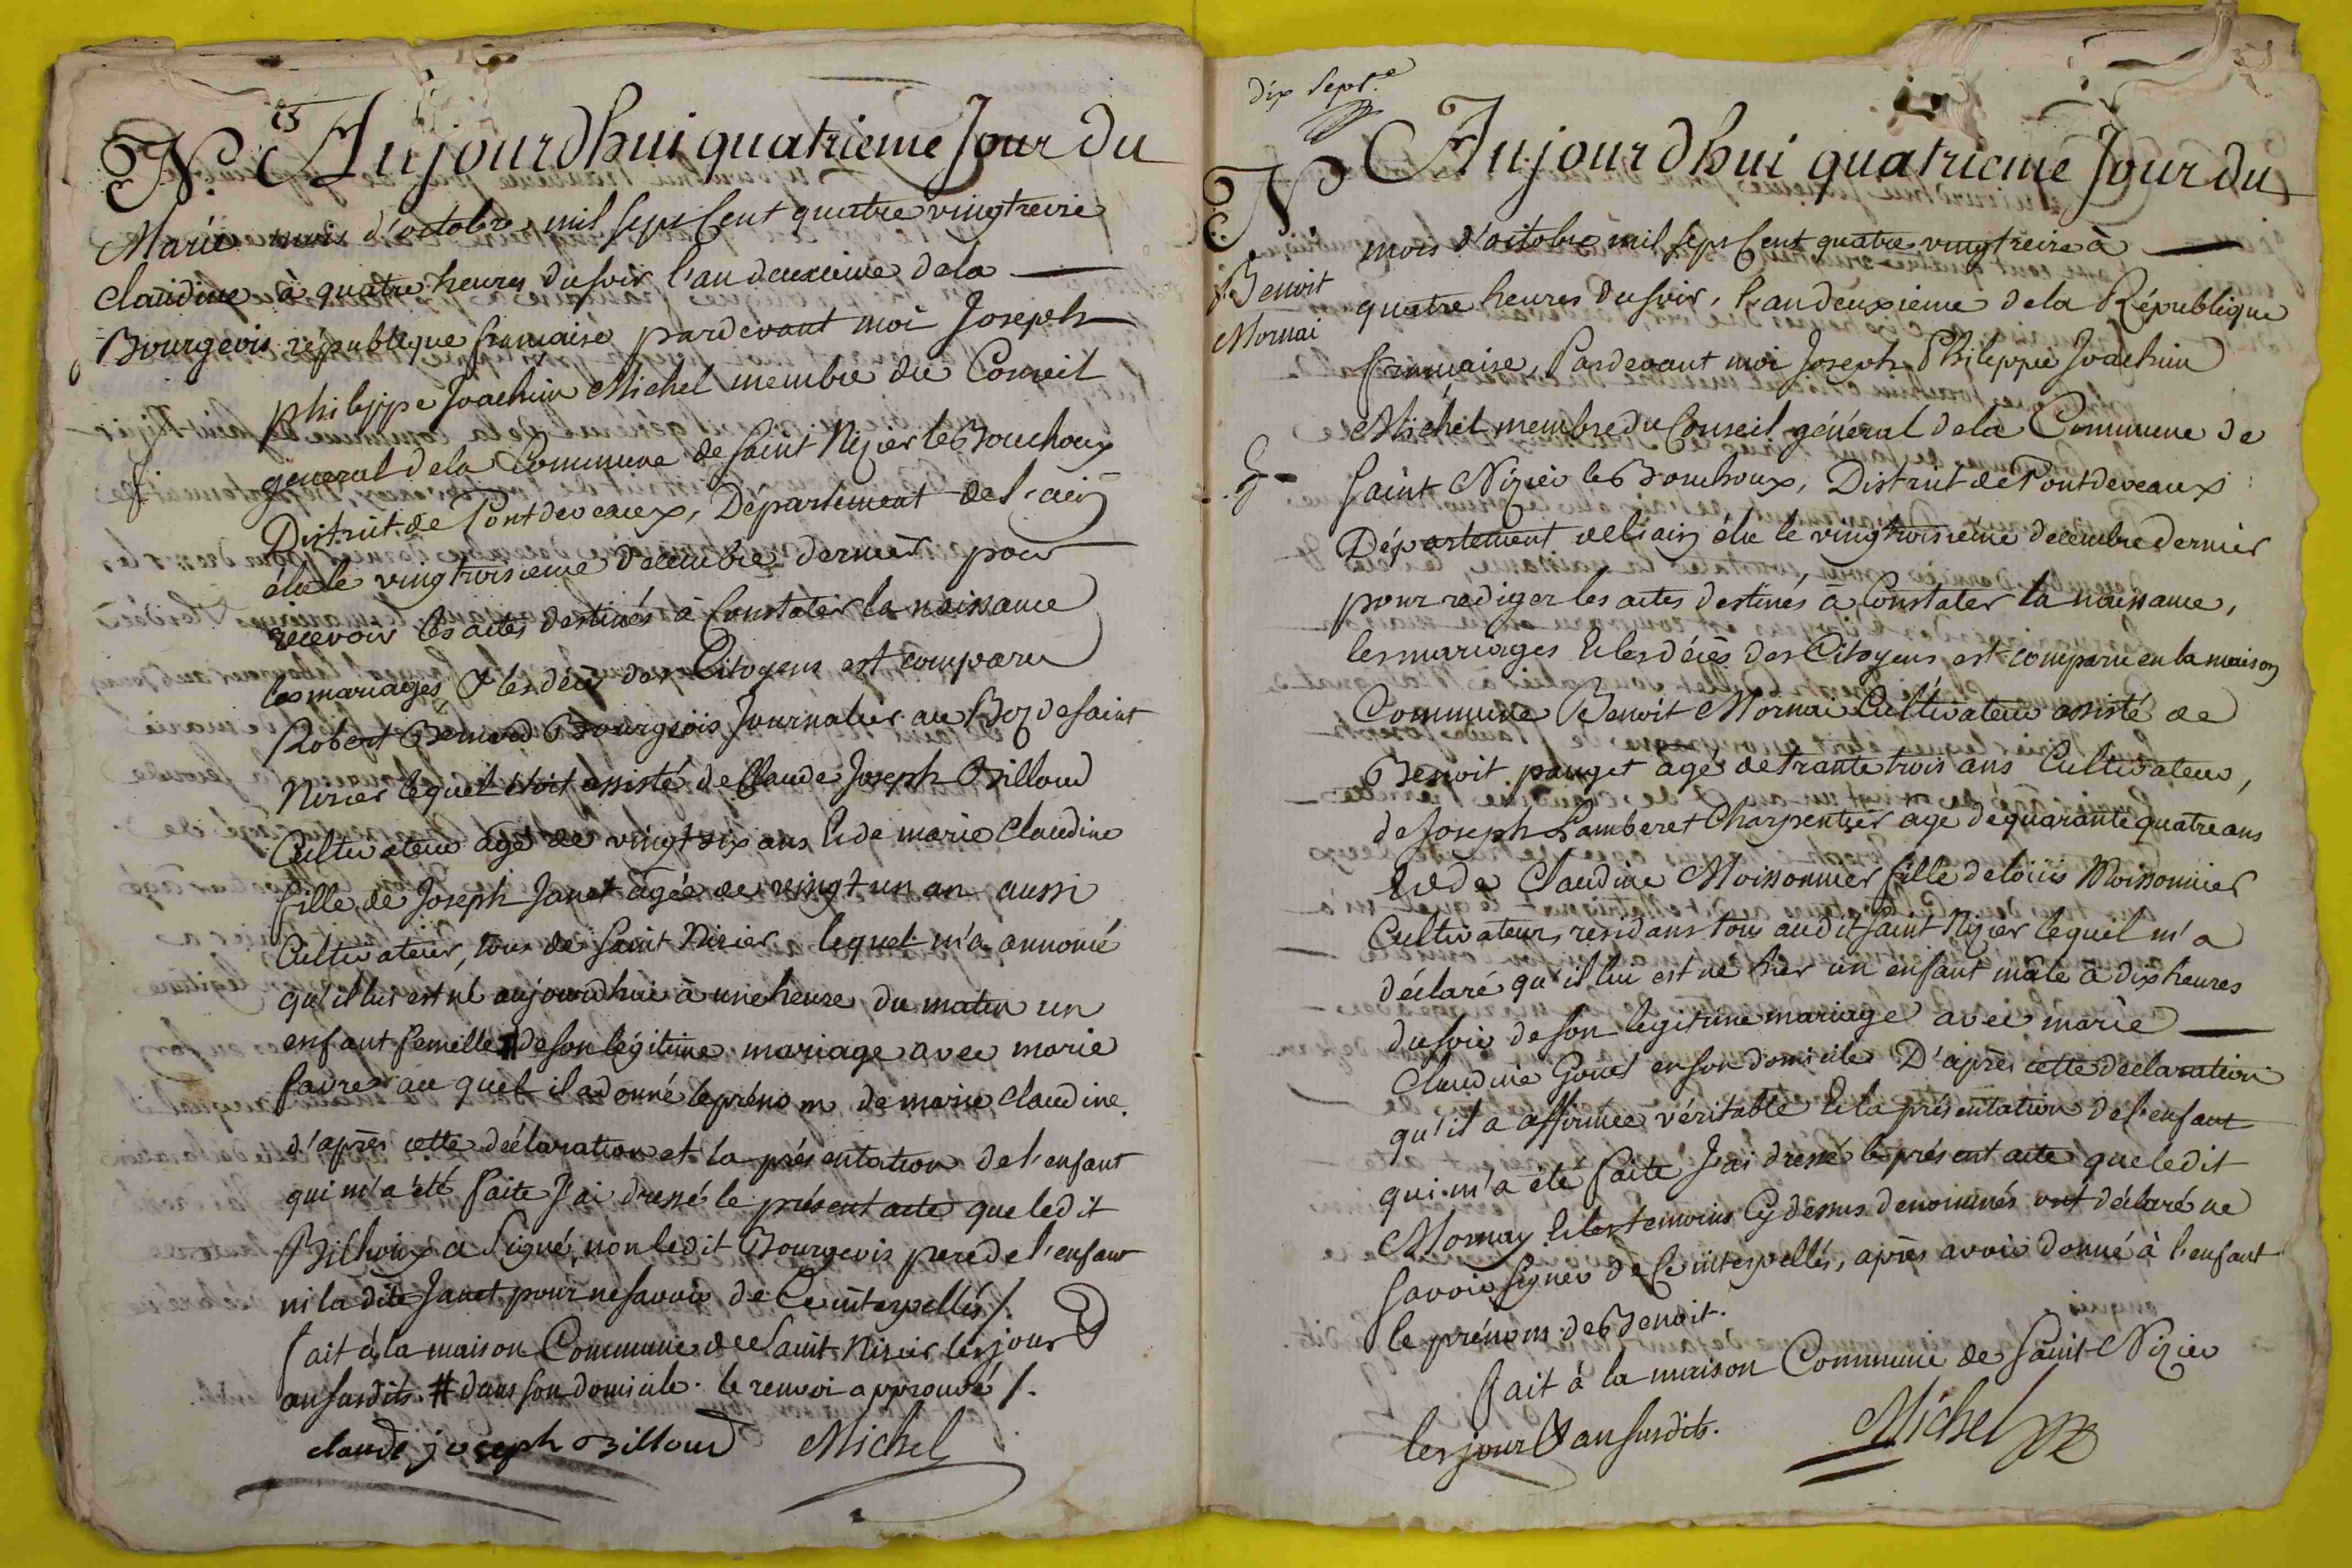 N. Aujourd'hui quatrieme Jour du
Marie mois d'octobre, mil sept Cent quatre vingt treize
Claudine à quatre heures du soir l'an deuxieme de la
Bourgeois république française pardevant moi Joseph
philippe Joachim Michel membre du Conseil
géneral de la Commune de Saint Nizier le Bouchoux
District de Pontdevaux, Département de l'ain
élu le vingtroisieme decembre dernier pour
recevoir les actes destinés à Constater la naissance
les mariages & les décès des Citoyens est comparu
Robert Bernard Bourgeois Journalier au Boz de saint
Nizier lequel étoit assisté de Claude Joseph Billoud
Cultivateur âgé de vingt six ans & de marie Claudine
fille de Joseph Janet âgée de vingt un an aussi
Cultivateur, tous de Saint Nizier lequel m'a annoncé
qu'il lui est né aujourdhui à une heure du matin un
enfant femelle # de son légitime mariage avec marie
favre au quel il a donné le prénom de marie Claudine.
d'après cette déclaration et la présentation de l'enfant
qui m'a été faite J'ai dressé le présent acte que ledit
Bilhoux a Signé, non ledit Bourgeois pere de l'enfant
ni la dite Janet pour ne savoir de Ce interpellés /.
fait à la maison Commune de Saint Nizier les jour &
an susdits. # dans son domicile. le renvoi approuvé /.
claude joseph Billoud Michel
dix sept.e
N. Aujourd'hui quatrieme Jour du
mois d'octobre mil sept Cent quatre vingt treize à
Benoit quatre heures du soir, l'an deuxieme de la République
Mornai française, Pardevant moi Joseph Philippe Joachim
Michel membre du Conseil général de la Commune de
Saint Nizier le Bouchoux, District de Pontdevaux
Département de l'ain élu le vingtroisième decembre dernier
pour rediger les actes destinés à Constater la naissance,
les mariages & les décès des Citoyens est comparu en la maison
Commune Benoit Mornai Cultivateur assisté de
Benoit pauget agé de trante trois ans Cultivateur,
de Joseph Lamberet Charpentier agé de quarante quatre ans
& de Claudine Moissonnier fille de loüis Moissonnier
Cultivateur, residans tous audit Saint Nizier lequel m'a
déclaré qu'il lui est né hier un enfant mâle à dix heures
du soir de son legitime mariage avec marie
Claudine Gouet en son domicile D'après cette déclaration
qu'il a affirmée véritable & la présentation de l'enfant
qui m'a été faite J'ai dressé le présent acte que ledit
Mornay & les temoins Cy dessus denommés ont déclaré ne
savoir signer de Ce interpellés, après avoir donné à l'enfant
le prénom de Benoit.
fait à la maison Commune de Saint Nizier
les jour & an susdits. Michel